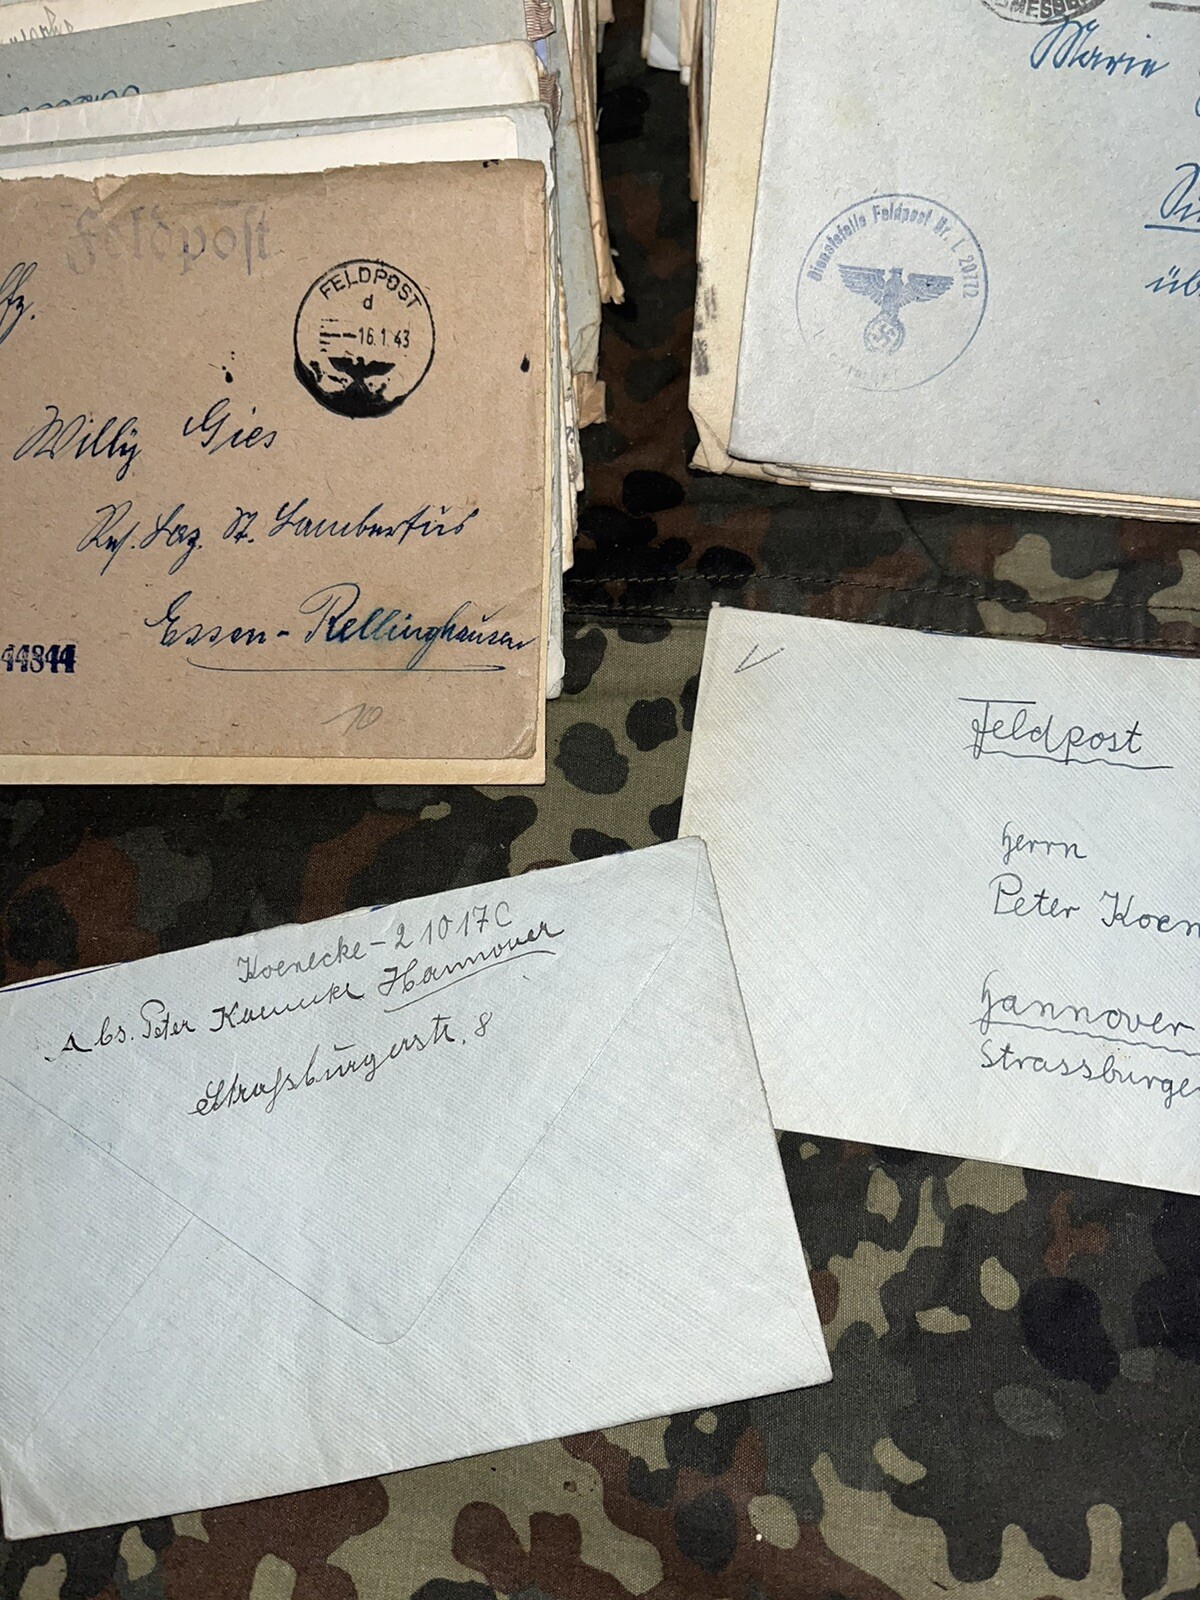 Feldpost
FELDPOST
d
16.1.43
Willy Gies
Res. Laz. St. Lambertus
Essen-Rellinghausen
44844
10
Marie
Dienststelle Feldpost Nr. L 20772
üb
Feldpost
Herrn
Peter Koen
Hannover
Strassburge
Koenecke - 21017C
Abs. Peter Koenecke Hannover
Straßburgerstr. 8